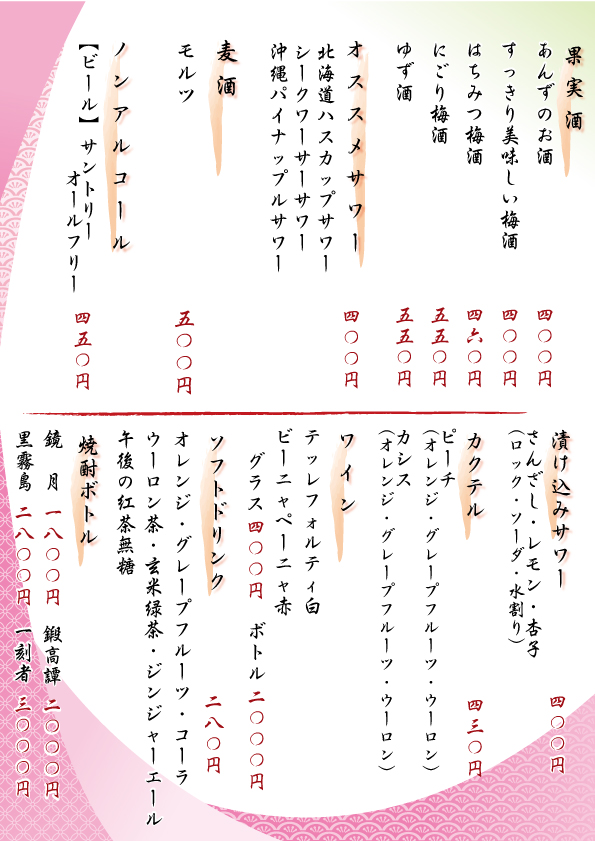 果実酒
あんずのお酒 四〇〇円
すっきり美味しい梅酒 四〇〇円
はちみつ梅酒 四六〇円
にごり梅酒 五五〇円
ゆず酒 五五〇円
オススメサワー 四〇〇円
北海道ハスカップサワー
シークワーサーサワー
沖縄パイナップルサワー
麦酒
モルツ 五〇〇円
ノンアルコール
【ビール】 サントリー
オールフリー 四五〇円
漬け込みサワー 四〇〇円
さんざし・レモン・杏子
(ロック・ソーダ・水割り)
カクテル 四三〇円
ピーチ
(オレンジ・グレープフルーツ・ウーロン)
カシス
(オレンジ・グレープフルーツ・ウーロン)
ワイン
テッレフォルティ白
ビーニャペーニャ赤
グラス 四〇〇円 ボトル 二〇〇〇円
ソフトドリンク 二八〇円
オレンジ・グレープフルーツ・コーラ
ウーロン茶・玄米緑茶・ジンジャーエール
午後の紅茶無糖
焼酎ボトル
鏡月 一八〇〇円 鍛高譚 二〇〇〇円
黒霧島 二八〇〇円 一刻者 三〇〇〇円